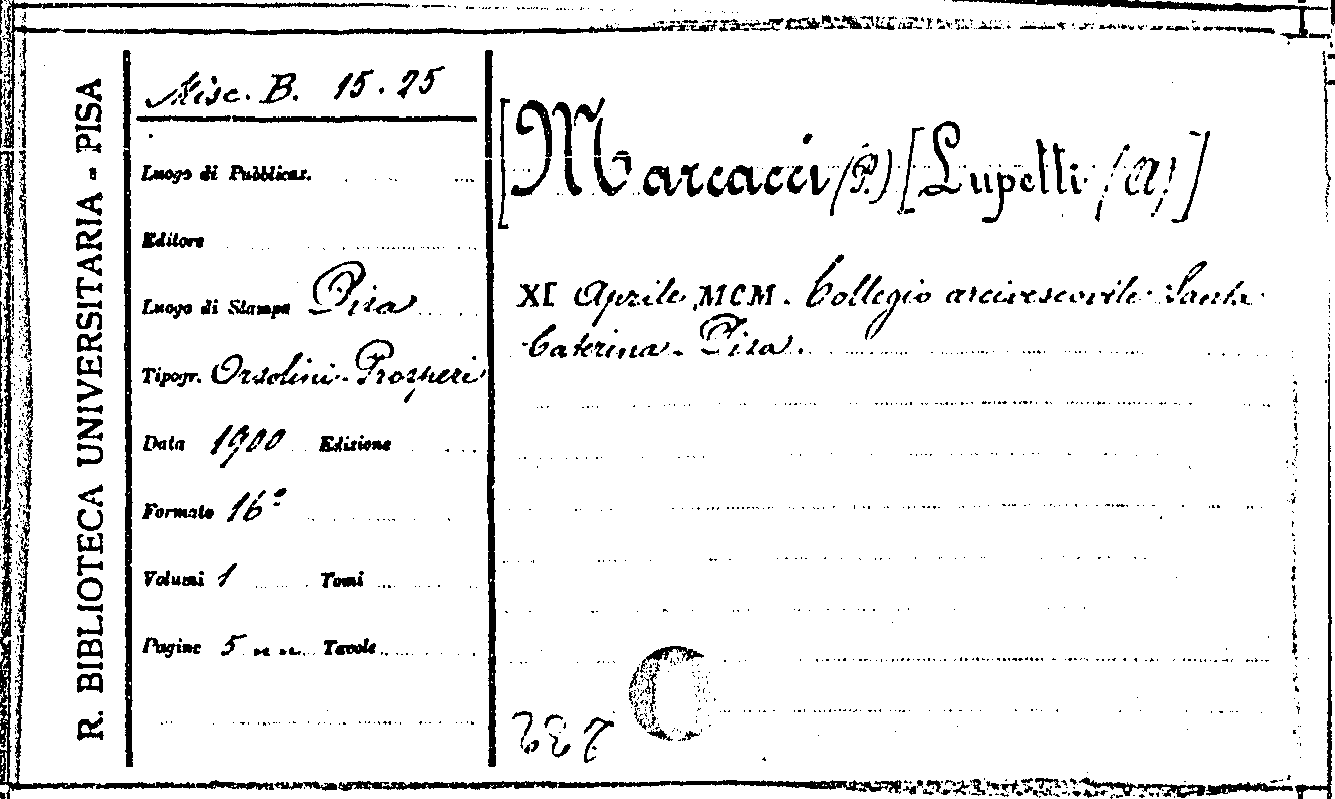 R. BIBLIOTECA UNIVERSITARIA - PISA
Misc. B. 15.25
Luogo di Pubblicaz.
Editore
Luogo di Stampa Pisa
Tipogr. Orsolini-Prosperi
Data 1900 Edizione
Formato 16°
Volumi 1 Tomi
Pagine 5 n. n. Tavole
[Marcacci (P.) [Lupetti (A)]
XI Aprile MCM. Collegio arcivescovile Santa
Caterina. Pisa.